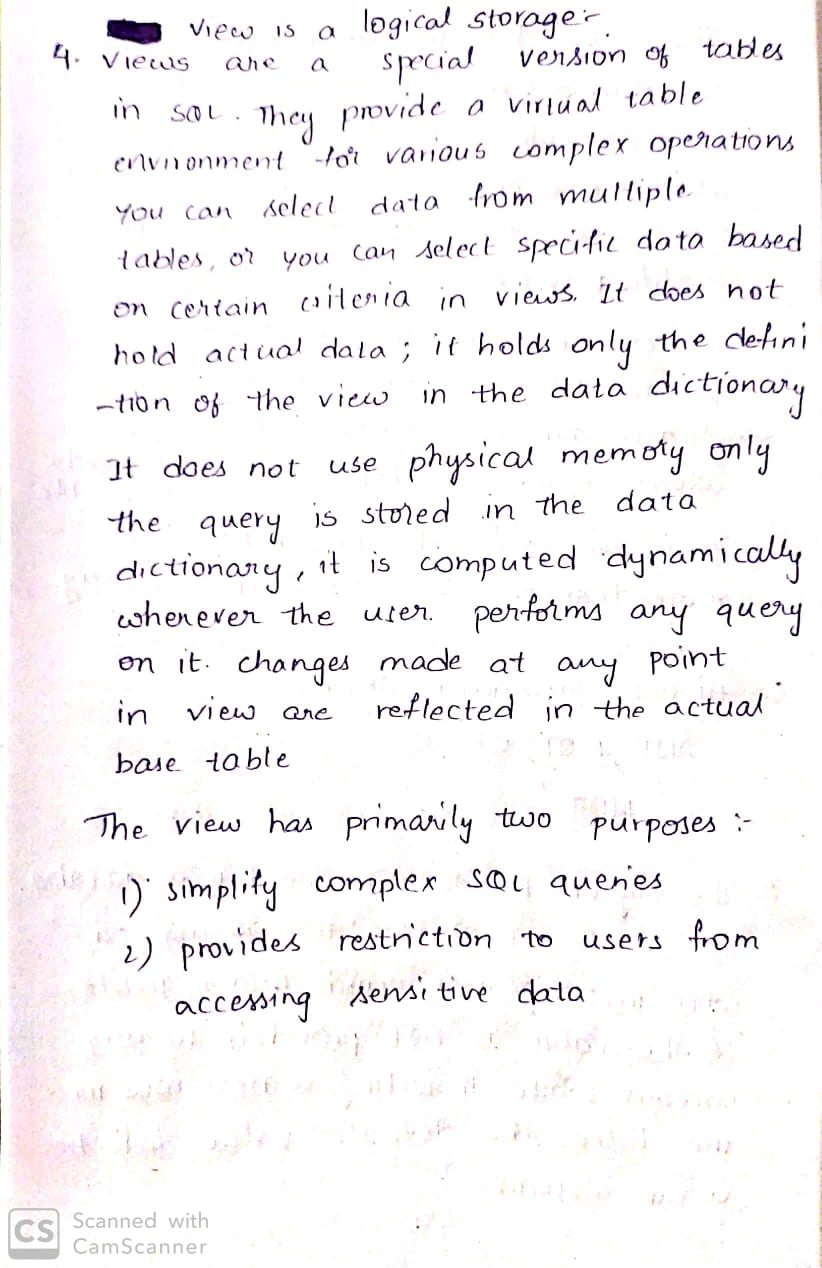 View is a logical storage:-
4. Views are a special version of tables
in SQL. They provide a virtual table
environment for various complex operations
you can select data from multiple
tables, or you can select specific data based
on certain criteria in views. It does not
hold actual data ; it holds only the defini
-tion of the view in the data dictionary
It does not use physical memory only
the query is stored in the data
dictionary, it is computed dynamically
whenever the user performs any query
on it. changes made at any point
in view are reflected in the actual
base table
The view has primarily two purposes :-
1) simplify complex SQL queries
2) provides restriction to users from
accessing sensitive data
CS Scanned with
CamScanner